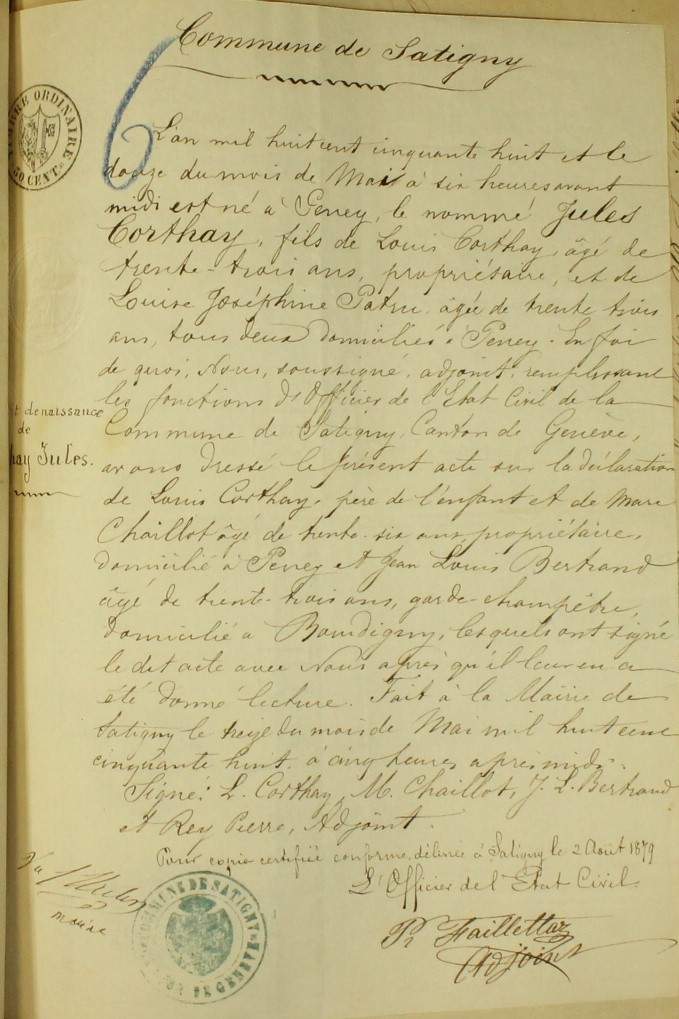 Commune de Satigny
TIMBRE ORDINAIRE
50 CENT.
L'an mil huit cent cinquante huit et le
douze du mois de Mai à six heures avant
midi est né à Peney, le nommé Jules
Corthay, fils de Louis Corthay, âgé de
trente-trois ans, propriétaire, et de
Louise Joséphine Patru, âgée de trente trois
ans, tous deux domiciliés à Peney. En foi
de quoi, Nous, soussigné, adjoint, remplissant
les fonctions d'Officier de l'Etat Civil de la
Commune de Satigny, Canton de Genève,
avons dressé le présent acte sur la déclaration
de Louis Corthay, père de l'enfant et de Marc
Chaillot âgé de trente-six ans, propriétaire,
domicilié à Peney et Jean Louis Bertrand
âgé de trente-trois ans, garde-champêtre,
domicilié à Bourdigny, lesquels ont signé
le dit acte avec Nous après qu'il leur en a
été donné lecture. Fait à la Mairie de
Satigny le treize du mois de Mai mil huit cent
cinquante huit à cinq heures après midi.
Signé: L. Corthay, M. Chaillot, J. L. Bertrand
et Rey Pierre, Adjoint.
de naissance
de
hay Jules.
Pour copie certifiée conforme, délivrée à Satigny le 2 Août 1879
L'Officier de l'Etat Civil.
Vu
maire
COMMUNE DE SATIGNY
CANTON DE GENEVE
Pr Faillettaz
Adjoint